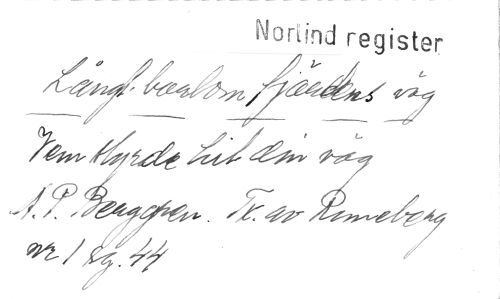 Norlind register
Långt bortom fjärdens våg
Vem styrde hit din väg
A. P. Berggren. Tx. av Runeberg
nr 1 sg. 44